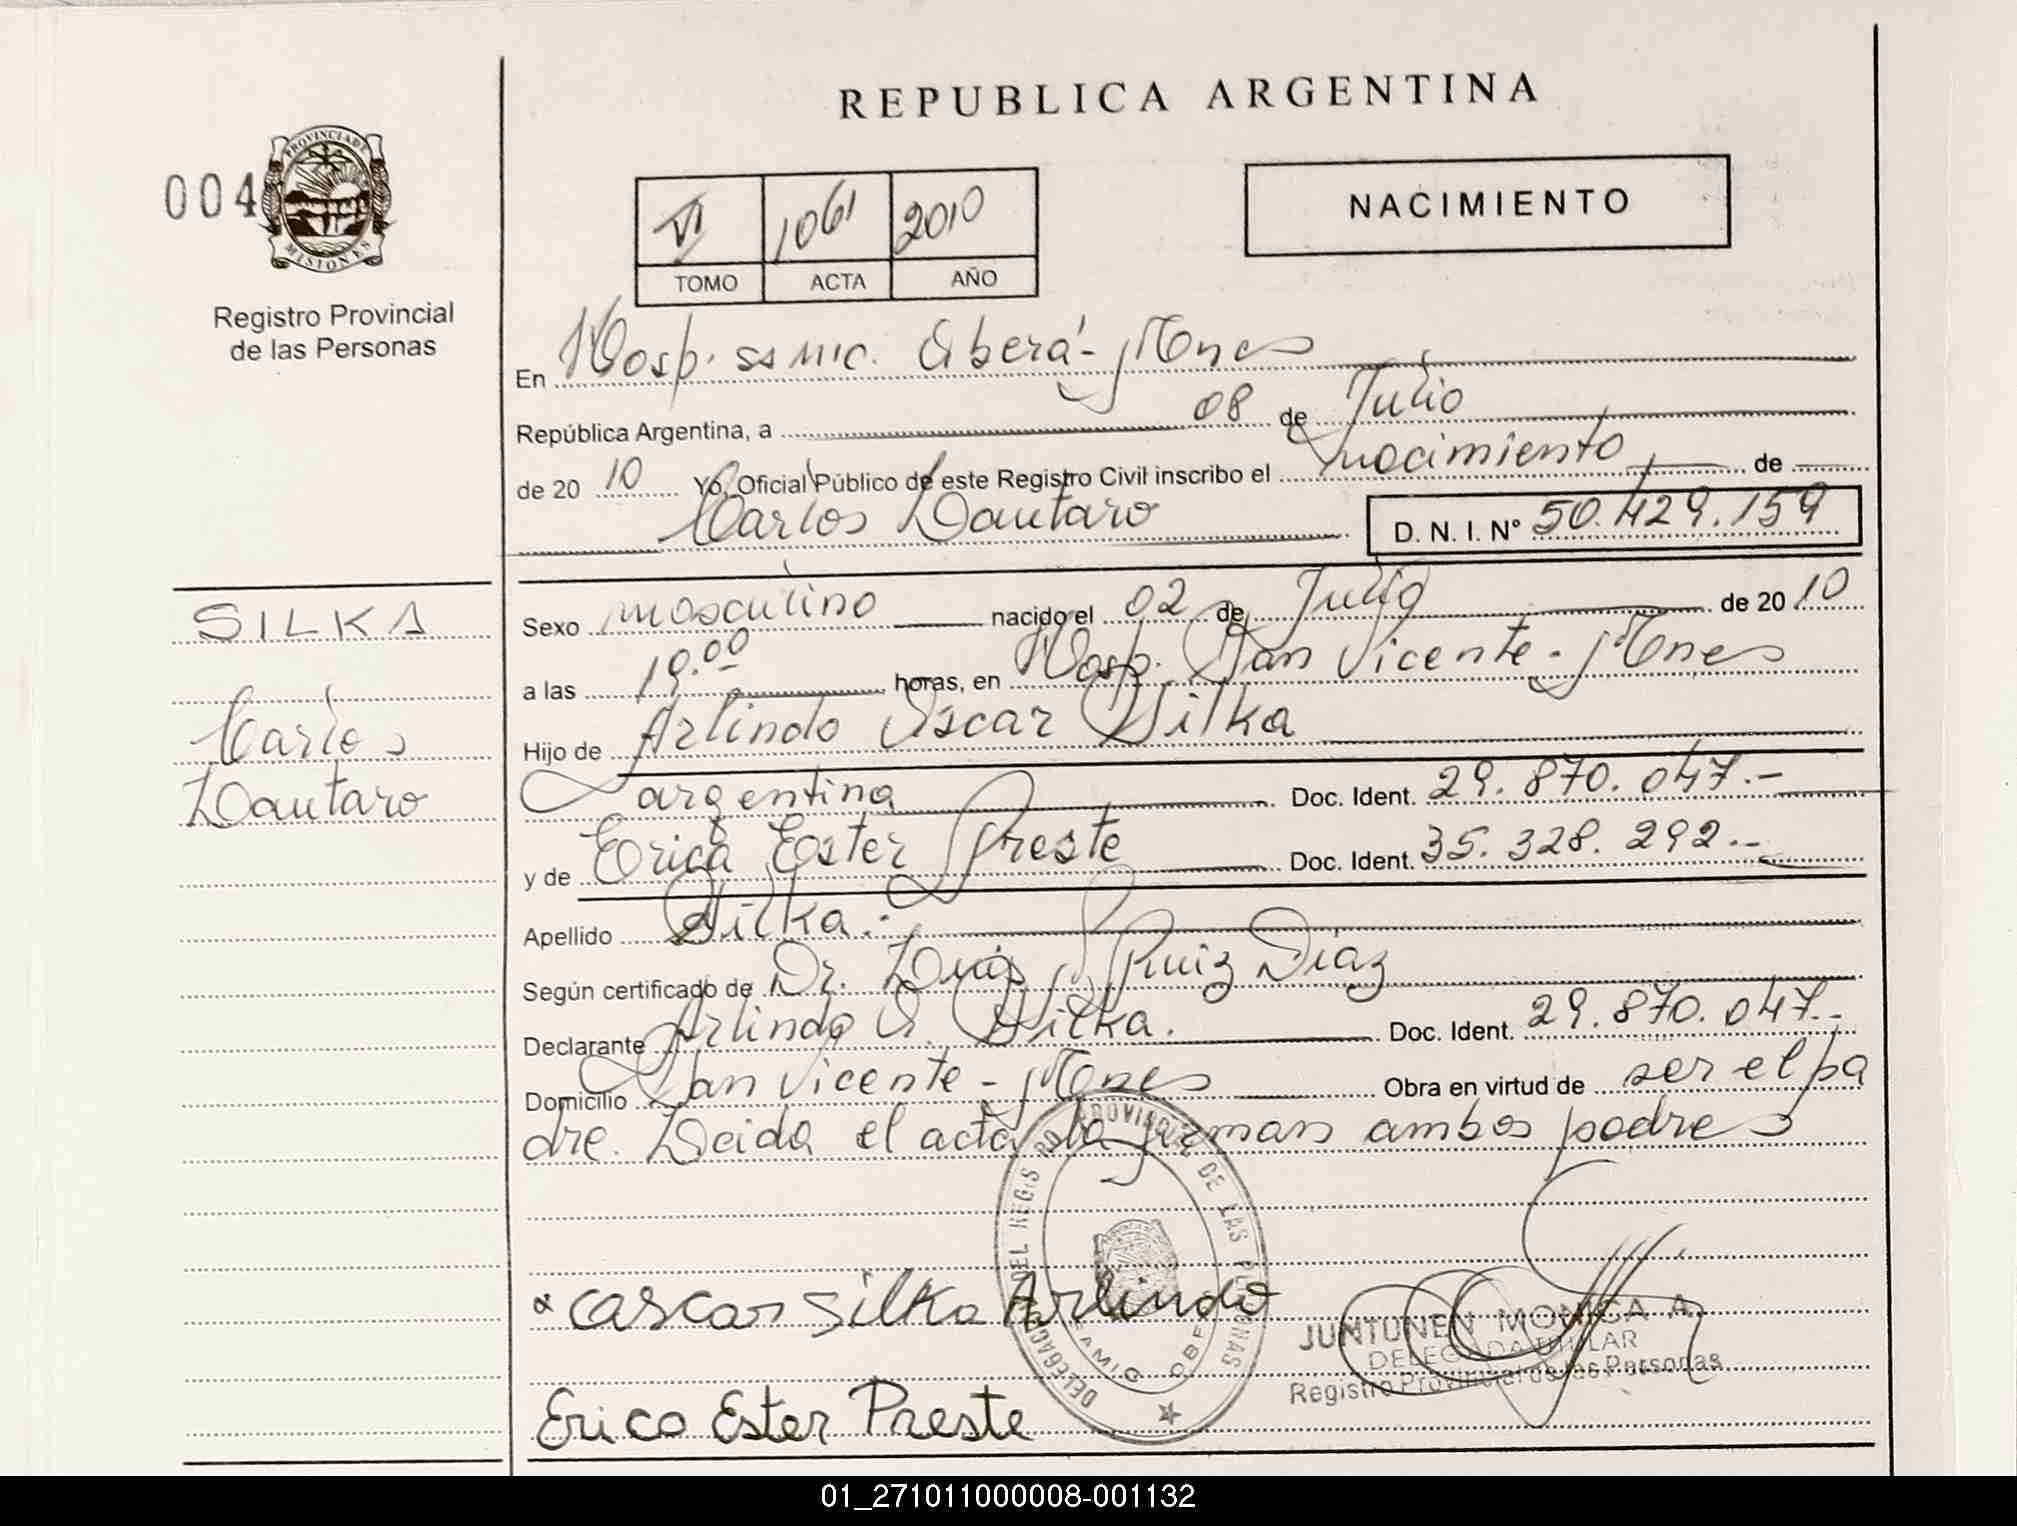 REPUBLICA ARGENTINA
004
PROVINCIA DE
MISIONES
Registro Provincial
de las Personas
VI 1061 2010
TOMO ACTA AÑO
NACIMIENTO
En Hosp. SAMIC. Oberá - Mnes
República Argentina, a 08 de Julio
de 20 10 Yo, Oficial Público de este Registro Civil inscribo el nacimiento de
Carlos Lautaro D. N. I. Nº 50.429.159
SILKA
Carlos
Lautaro
Sexo masculino nacido el 02 de Julio de 20 10
a las 19.00 horas, en Hosp. San Vicente - Mnes
Hijo de Arlindo Oscar Silka
argentina Doc. Ident. 29.870.047.-
y de Erica Ester Preste Doc. Ident. 35.328.292.-
Apellido Silka.
Según certificado de Dr. Luis Ruiz Diaz
Declarante Arlindo O. Silka. Doc. Ident. 29.870.047.-
Domicilio San Vicente - Mnes Obra en virtud de ser el pa
dre. Leida el acta la firman ambos padres
DELEGACION DEL REGIS RO PROVINCIAL DE LAS PERSONAS
SAMIC OBERA
Oscar Silka Arlindo
JUNTUNEN MONICA A.
DELEGADA TITULAR
Registro Provincial de las Personas
Erica Ester Preste
01_271011000008-001132